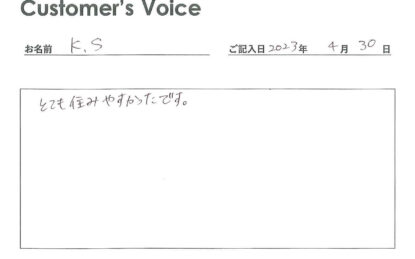 Customer's Voice
お名前 K.S ご記入日 2023年 4月 30日
とても住みやすかったです。